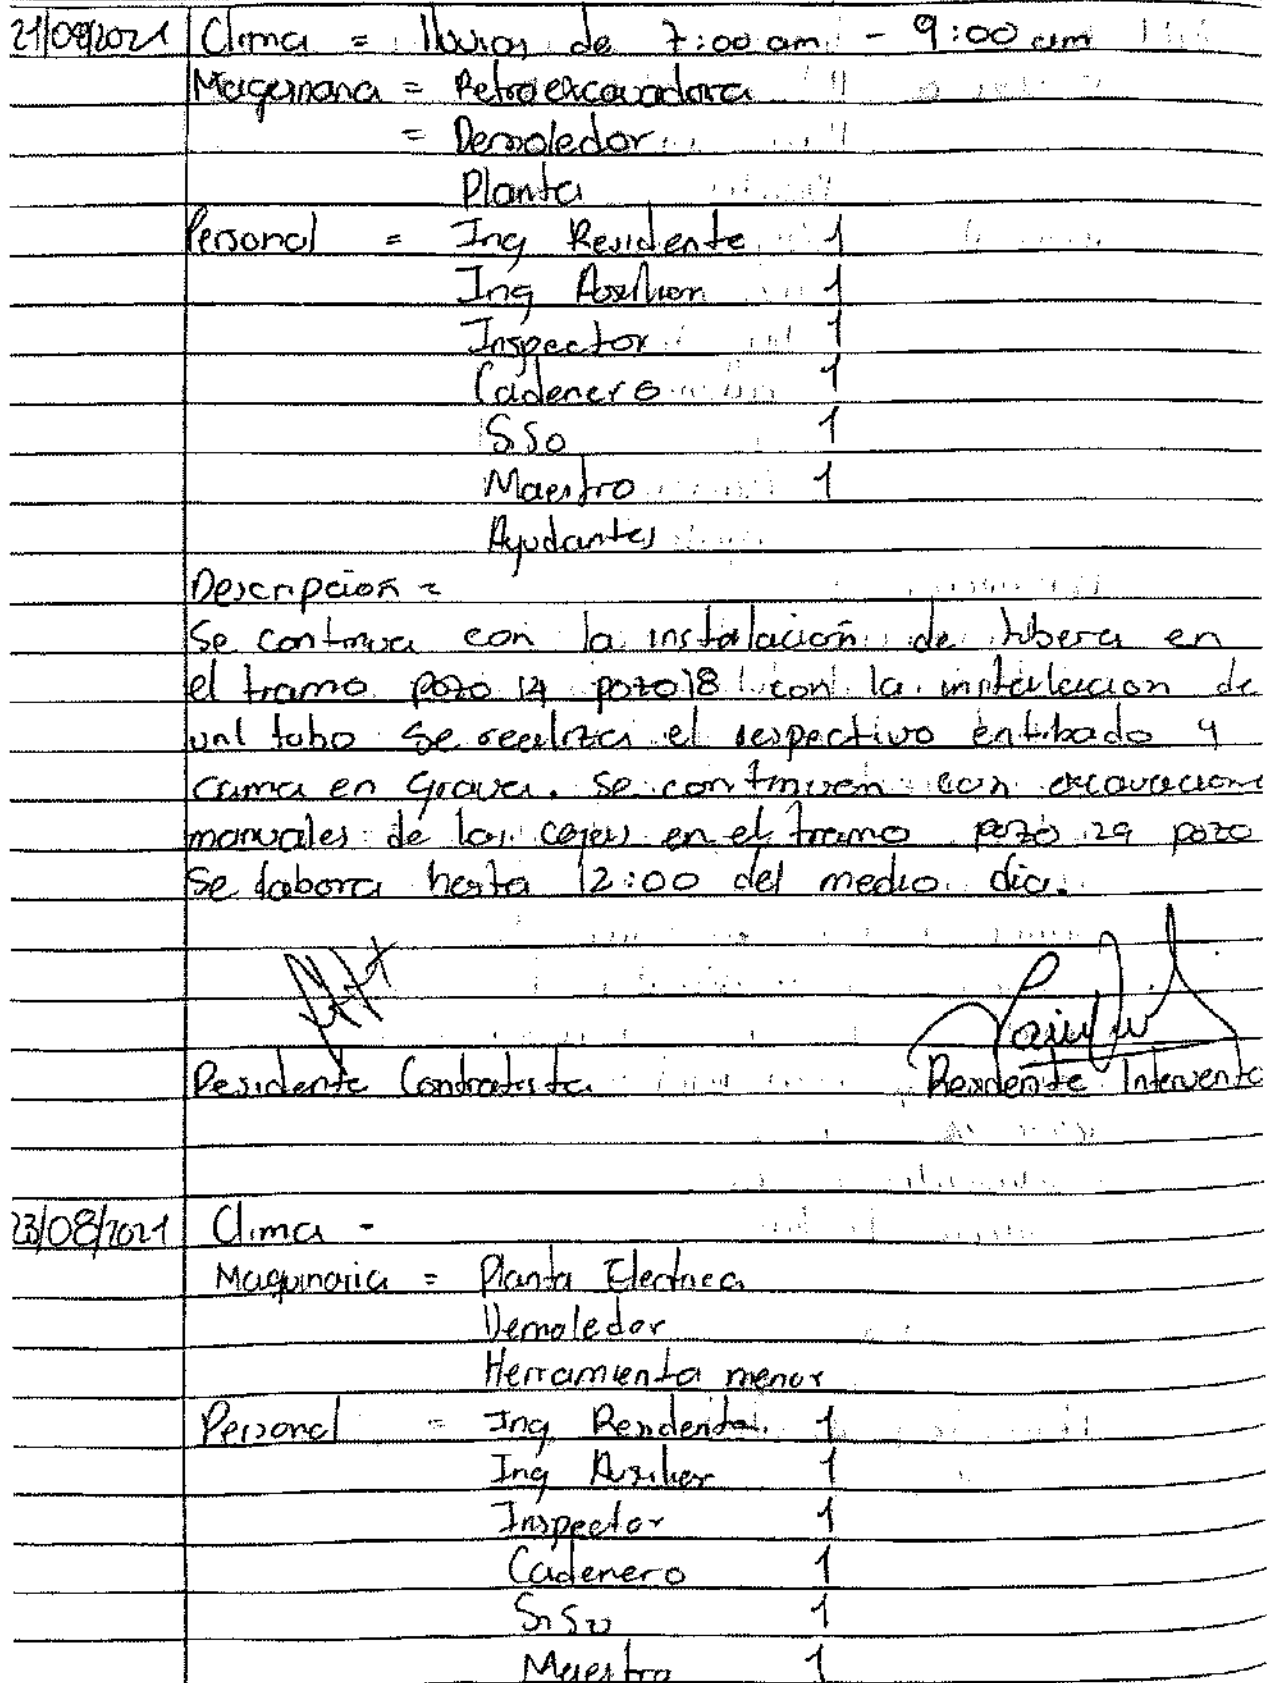 21/08/2021 Clima = lluvias de 7:00 am - 9:00 am
Maquinaria = Retroexcavadora
= Demoledor
Planta
Personal = Ing Residente 1
Ing Auxiliar 1
Inspector 1
Cadenero 1
SiSo 1
Maestro 1
Ayudantes
Descripción =
Se continua con la instalación de tuberia en
el tramo pozo 17 pozo 18 con la instalacion de
un1 tubo se realiza el respectivo entibado y
cama en Grava. se continuan con excavacione
manuales de las cajas en el tramo pozo 29 pozo
Se labora hasta 12:00 del medio dia.
Residente Contratista Residente Intervento
23/08/2021 Clima -
Maquinaria = Planta Electrica
Demoledor
Herramienta menor
Personal = Ing Residente 1
Ing Auxiliar 1
Inspector 1
Cadenero 1
SiSo 1
Maestro 1